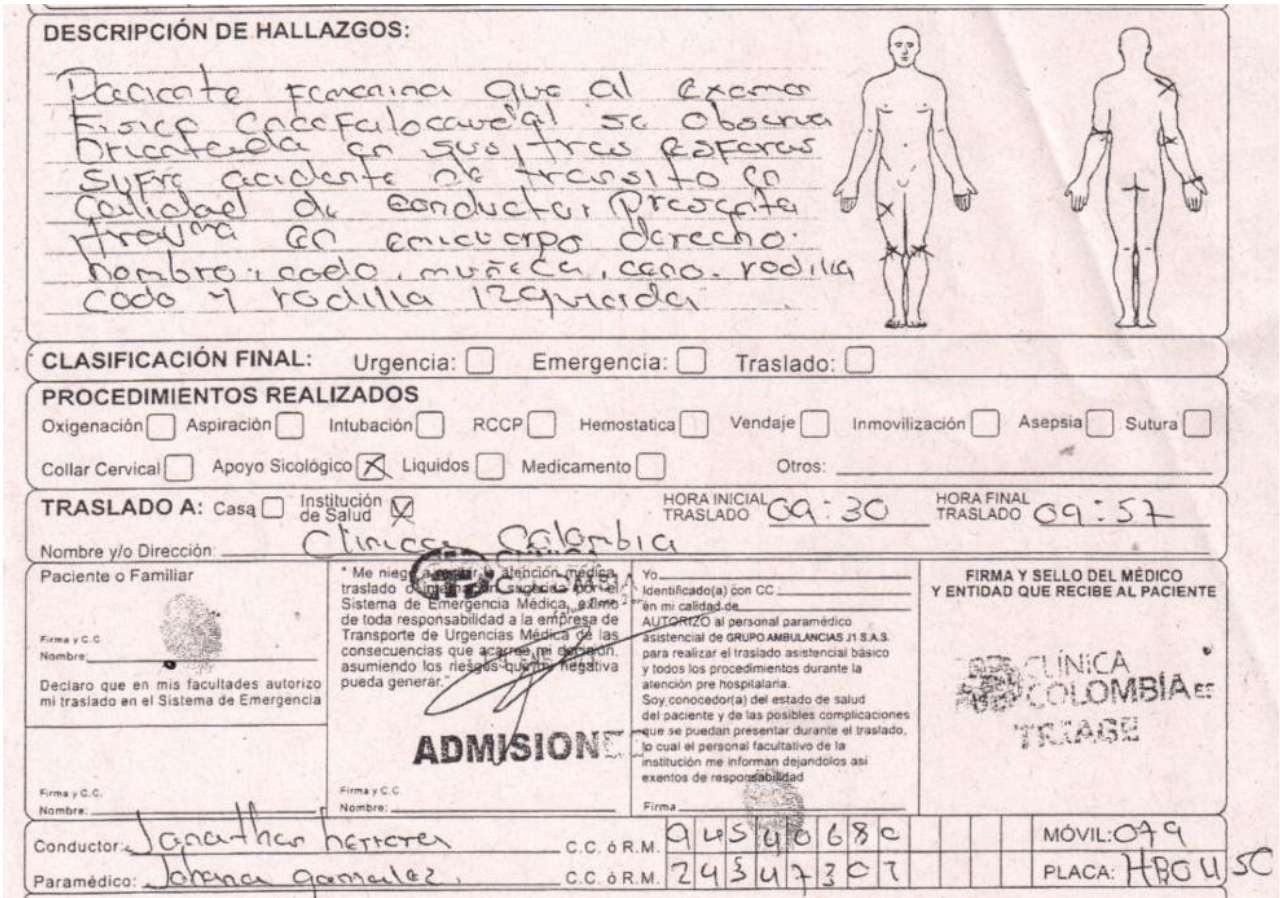 DESCRIPCIÓN DE HALLAZGOS:
Paciente femenina que al examen
Fisico encefalocaudal se observa
Orientada en sus tres esferas
sufre acidente de transito en
calidad de conductor, presenta
trauma en emicuerpo derecho.
hombro, codo, muñeca, rodilla
codo y rodilla izquierda
CLASIFICACIÓN FINAL: Urgencia: Emergencia: Traslado:
PROCEDIMIENTOS REALIZADOS
Oxigenación Aspiración Intubación RCCP Hemostatica Vendaje Inmovilización Asepsia Sutura
Collar Cervical Apoyo Sicológico X Liquidos Medicamento Otros:
TRASLADO A: Casa Institución de Salud X HORA INICIAL TRASLADO 09:30 HORA FINAL TRASLADO 09:57
Nombre y/o Dirección: Clinica Colombia
Paciente o Familiar
Firma y C.C
Nombre:
Declaro que en mis facultades autorizo
mi traslado en el Sistema de Emergencia
Firma y C.C.
Nombre:
" Me niego a recibir la atención médica,
traslado o por el
Sistema de Emergencia Médica, eximo
de toda responsabilidad a la empresa de
Transporte de Urgencias Médica de las
consecuencias que acarree mi decisión,
asumiendo los riesgos que mi negativa
pueda generar."
ADMISIONES
Firma y C.C.
Nombre:
Yo
Identificado(a) con CC :
en mi calidad de
AUTORIZO al personal paramédico
asistencial de GRUPO AMBULANCIAS J1 S.A.S.
para realizar el traslado asistencial básico
y todos los procedimientos durante la
atención pre hospitalaria.
Soy conocedor(a) del estado de salud
del paciente y de las posibles complicaciones
que se puedan presentar durante el traslado,
lo cual el personal facultativo de la
institución me informan dejandolos asi
exentos de responsabilidad
Firma
FIRMA Y SELLO DEL MÉDICO
Y ENTIDAD QUE RECIBE AL PACIENTE
CLÍNICA
COLOMBIA ES
TRIAGE
Conductor: Jonathan herrera C.C. ó R.M. MÓVIL: 079
Paramédico: Johana gonzalez. C.C. ó R.M. PLACA: